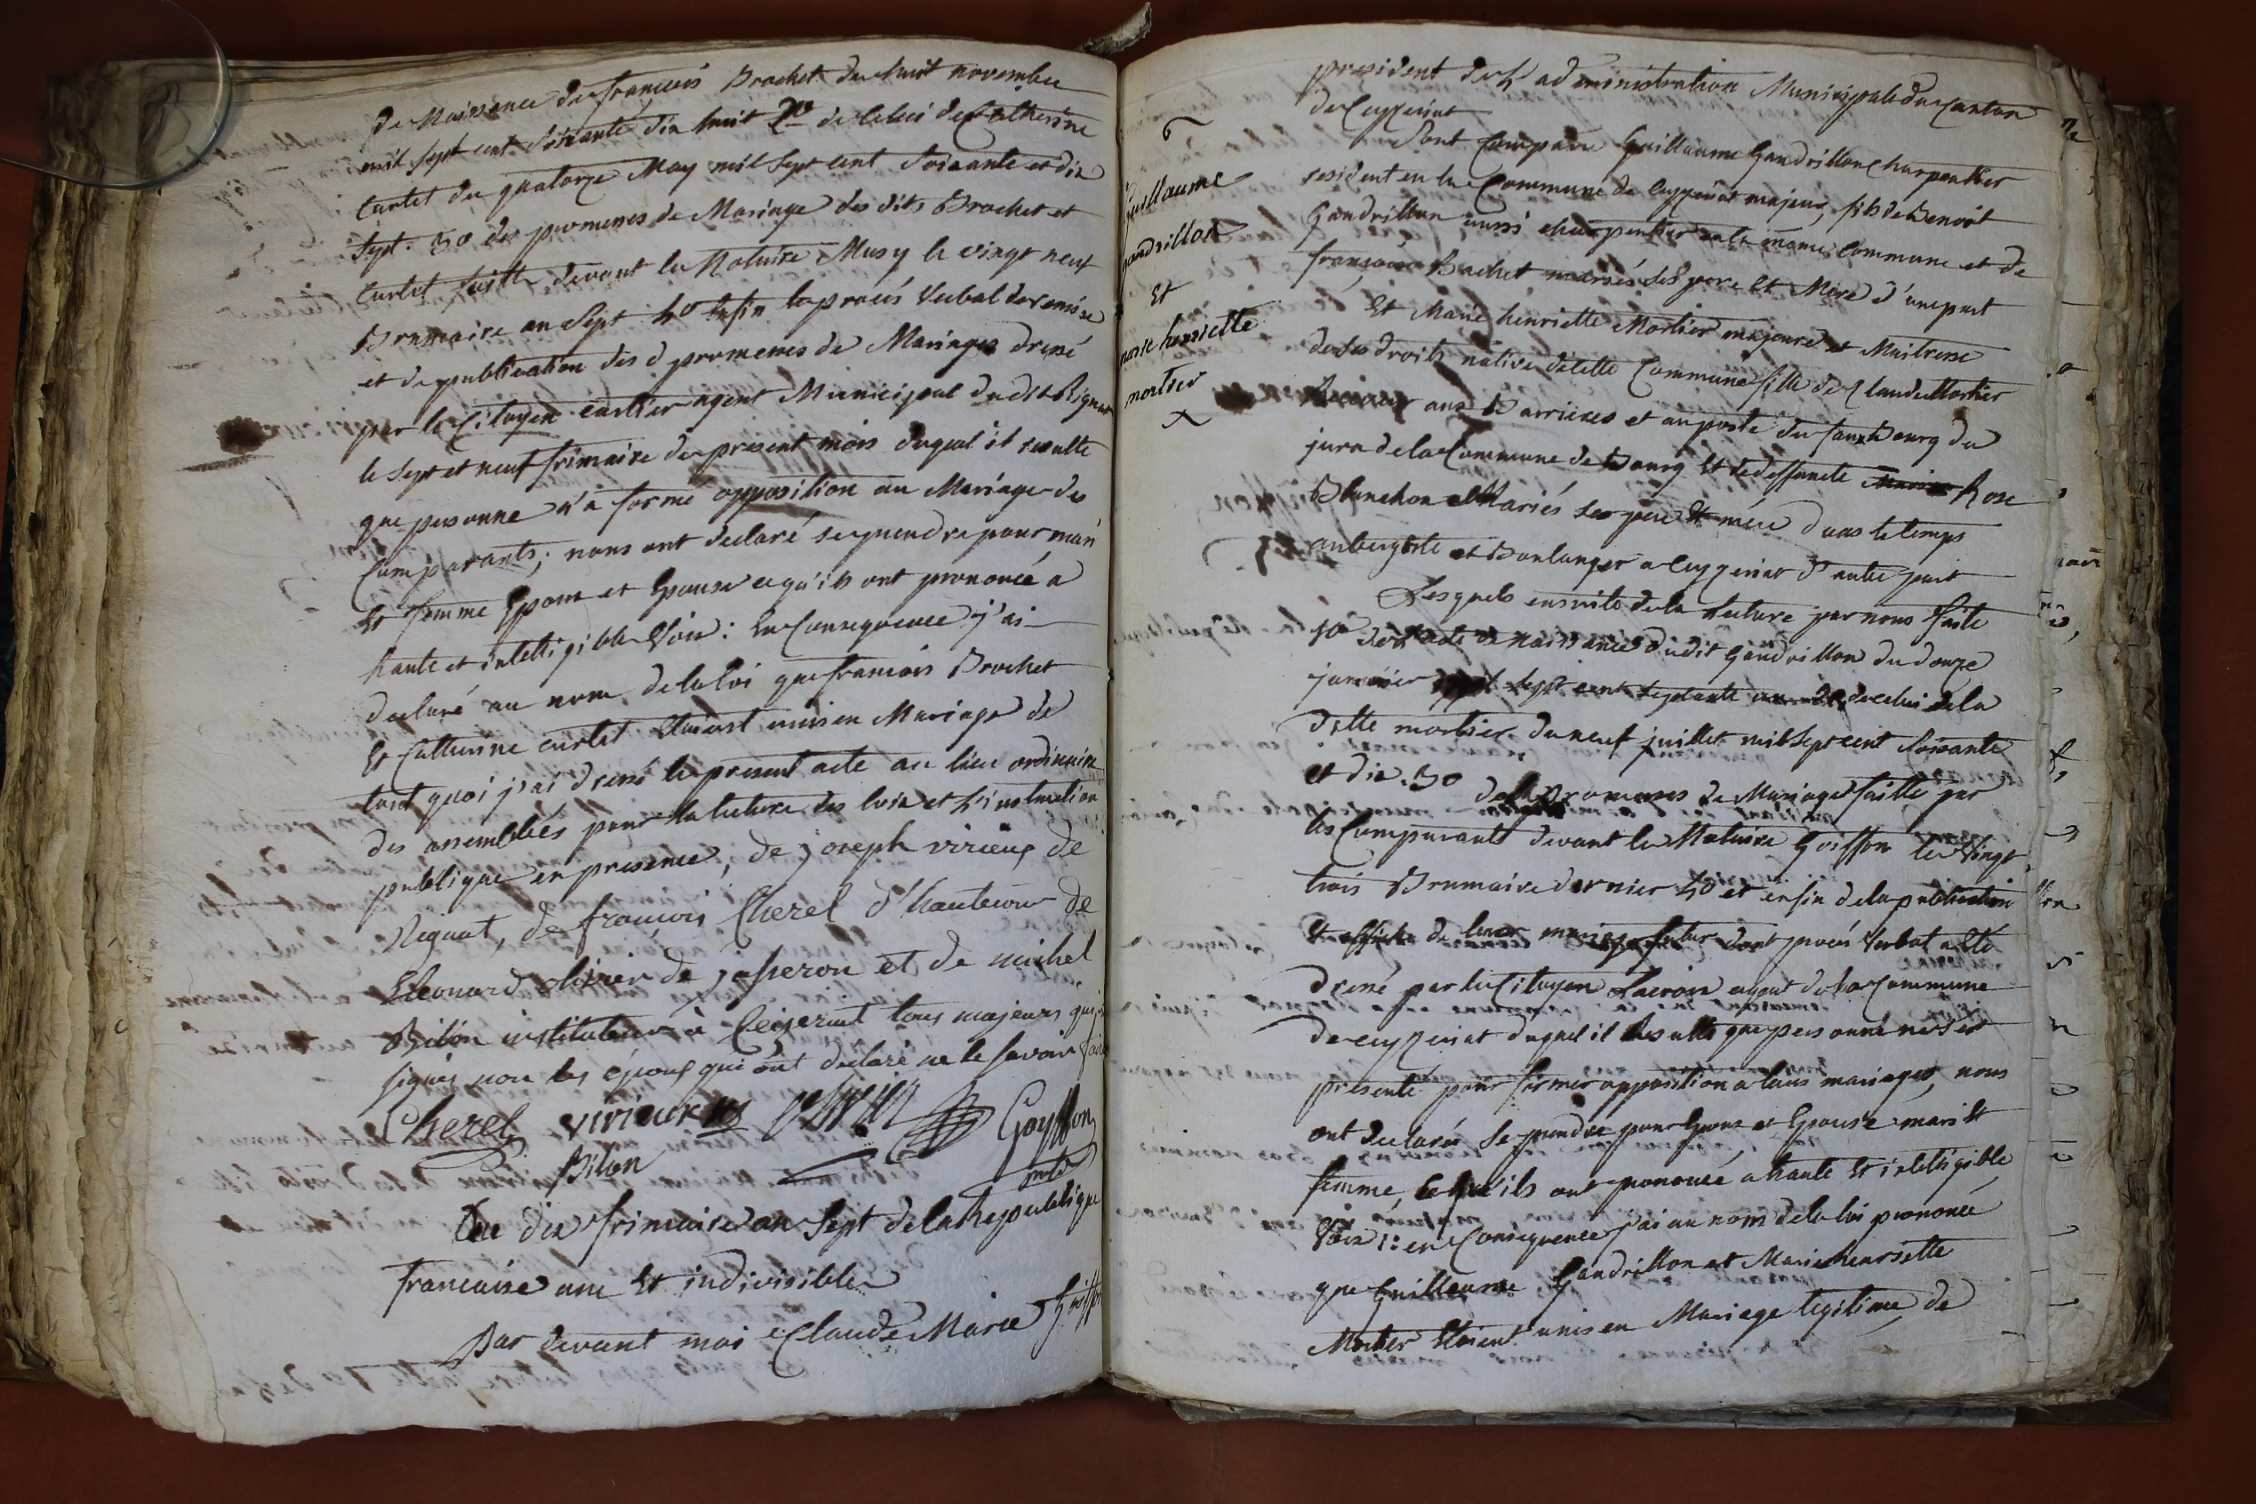 de Naissance de françois Brochet du huit novembre
mil sept cent soixante dix huit 2º de Celui de Catherine
Curtet du quatorze May mil sept cent soixante et dix
sept. 3º des promesses de Mariage des dits Brochet et
Curtet faitte devant le Notaire Musy le vingt neuf
Brumaire an Sept 4º Enfin le procés Verbal de remise
et de publication des d promesses de Mariages dressé
par le Citoyen curtier agent Municipal du dit Rignat
le sept et neuf frimaire du present mois duquel il resulte
que personne n'a formé opposition au Mariage des
Comparants; nous ont declaré se prendre pour mari
Et femme Epoux et Epouse ce qu'ils ont prononcé a
haute et intelligible Voix: En Consequence j'ai
declaré au nom de la loi que francois Brochet
Et Catherine curtet Etoient unis en Mariage de
tout quoi j'ai dressé le present acte au lieu ordinaire
des assemblées pour la lecture des loix et l'instruction
publique en presence, de joseph virieux de
Rignat, de françois Cherel d'hautecour de
Eleonard olivier de jasseron et de michel
Bilon instituteur à Ceiseriat tous majeurs qui
signés non les époux qui ont declaré ne le savoir faire
Cherel virieux Goyffon
Bilon
Du dix frimaire an Sept de la Republique
francaise une Et indivisible
Par devant moi Claude Marie Guiffon
president de l'administration Municipale du Canton
de Ceyzeriat
Sont Comparu Guillaume Gandrillon Charpentier
resident en la Commune de Ceyzeriat majeur, fils de Benoit
Gandrillon aussi charpentier en la même Commune et de
françoise Buchet mariés ses pere Et Mere d'une part
Et Marie henriette Mortier majeure et Maitresse
de ses droits native de cette Commune fille de Claude Mortier
aux Barrieres et au poste du fauxbourg du
jura de la Commune de Bourg Et de deffuncte Rose
Blanchon Mariés ses pere Et mere dans le temps
aubergiste et Boulanger a Ceyzeriat d'autre part
Lesquels ensuite de la lecture par nous faite
1º de l'acte de naissance dudit Gandrillon du douze
janvier mil sept cent septante un 2º de celui de la
ditte mortier du neuf juillet mil sept cent soixante
et dix. 3º des promesses de Mariage faitte par
les Comparants devant le Notaire Goiffon le Vingt
trois Brumaire dernier 4º et enfin de la publication
Et affiche de leur mariage futur dont procés Verbal a Eté
dressé par le Citoyen Lacroix agent de la Commune
de Ceyzeriat duquel il Resulte que personne ne s'est
presenté pour former opposition a leurs mariages, nous
ont declarés se prendre pour Epoux et Epouse mari Et
femme, Ce qu'ils ont prononcé a haute Et inteligible
Voix: en Consequence j'ai au nom de la loi prononcé
que Guillaume Gandrillon et Marie henriette
Mortier Etoient unis en Mariage legitime, de
guillaume
gandrillon
Et
marie henriette
mortier